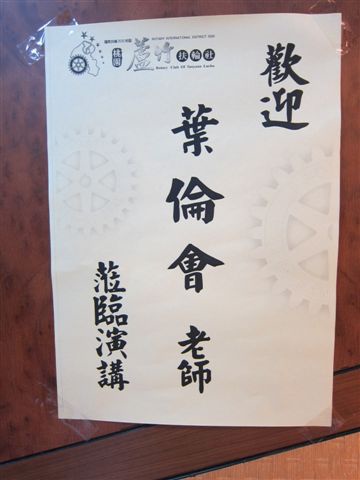 ROTARY INTERNATIONAL DISTRICT 3500
桃園 蘆竹 扶輪社
Rotary Club Of Taoyuan Luchu
歡迎
葉倫會 老師
蒞臨演講